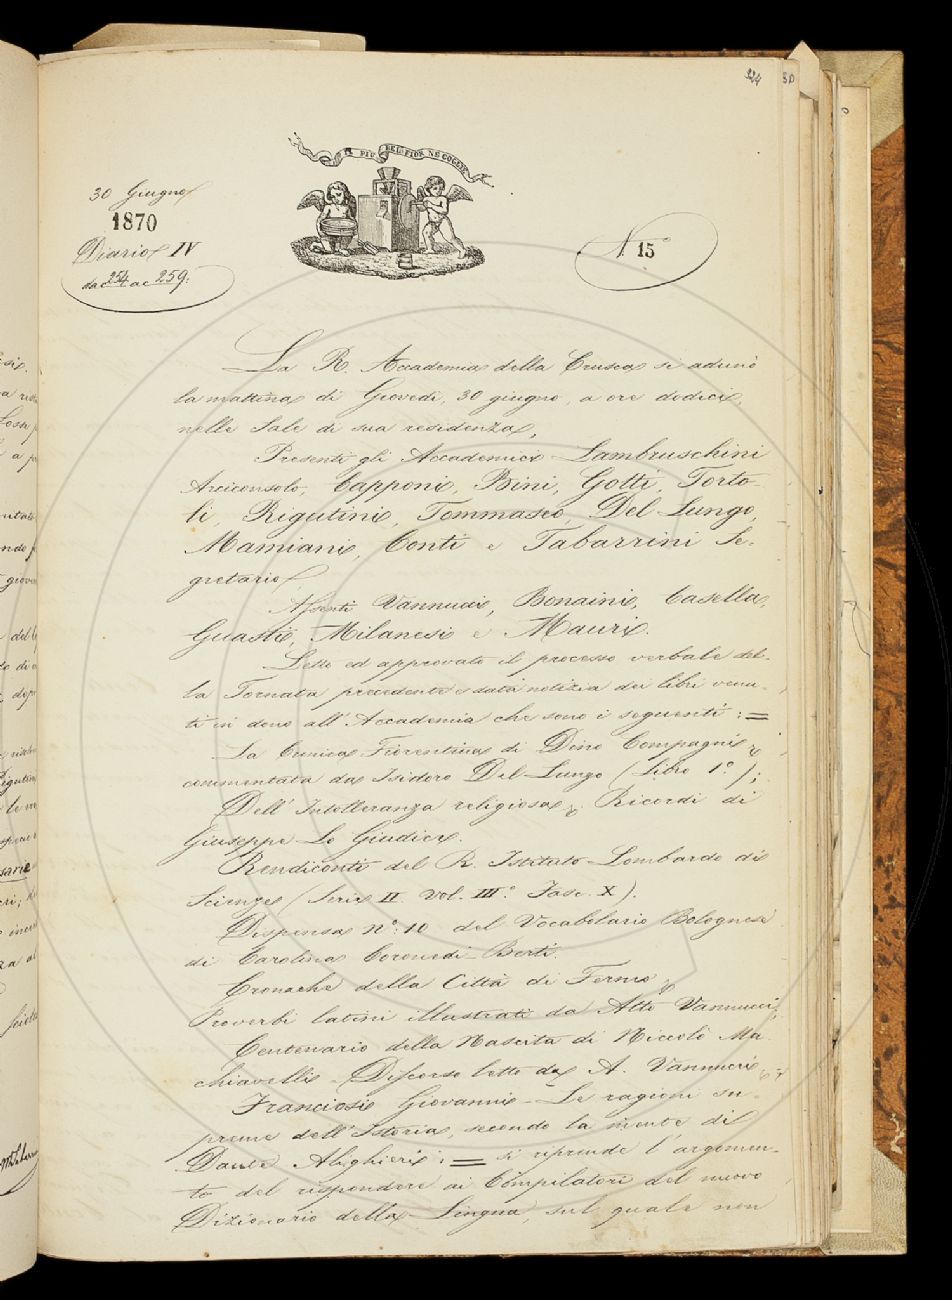 324 30
IL PIÙ BEL FIOR NE COGLIE
30 Giugno
1870
Diario IV
da c 254 a c 259.
N. 15
La R. Accademia della Crusca si adunò
la mattina di Giovedì, 30 giugno, a ore dodici,
nelle Sale di sua residenza,
Presenti gli Accademici Lambruschini
Arciconsolo, Capponi, Bini, Gotti, Torto-
li, Rigutini, Tommaseo, Del Lungo,
Mamiani, Conti e Tabarrini Se-
gretario
Assenti Vannucci, Bonaini, Casella,
Guasti, Milanesi e Mauri.
Letto ed approvato il processo verbale del-
la Tornata precedente è data notizia dei libri venu-
ti in dono all'Accademia che sono i seguenti: =
La Cronica Fiorentina di Dino Compagni
commentata da Isidoro Del Lungo (Libro 1°.);
Dell'Intolleranza religiosa; Ricordi di
Giuseppe Lo Giudice.
Rendiconti del R. Istituto Lombardo di
Scienze (Serie II Vol. III.° Fasc. X).
Dispensa n°: 10 del Vocabolario Bolognese
di Carolina Coronedi-Berti.
Cronache della Città di Fermo;
Proverbi latini illustrati da Atto Vannucci;
Centenario della Nascita di Niccolò Ma
chiavelli - Discorso letto da A. Vannucci;
Franciosi Giovanni - Le ragioni su-
preme dell'Istoria, secondo la mente di
Dante Alighieri; = si riprende l'argomen-
to del rispondere ai Compilatori del nuovo
Dizionario della Lingua, sul quale non